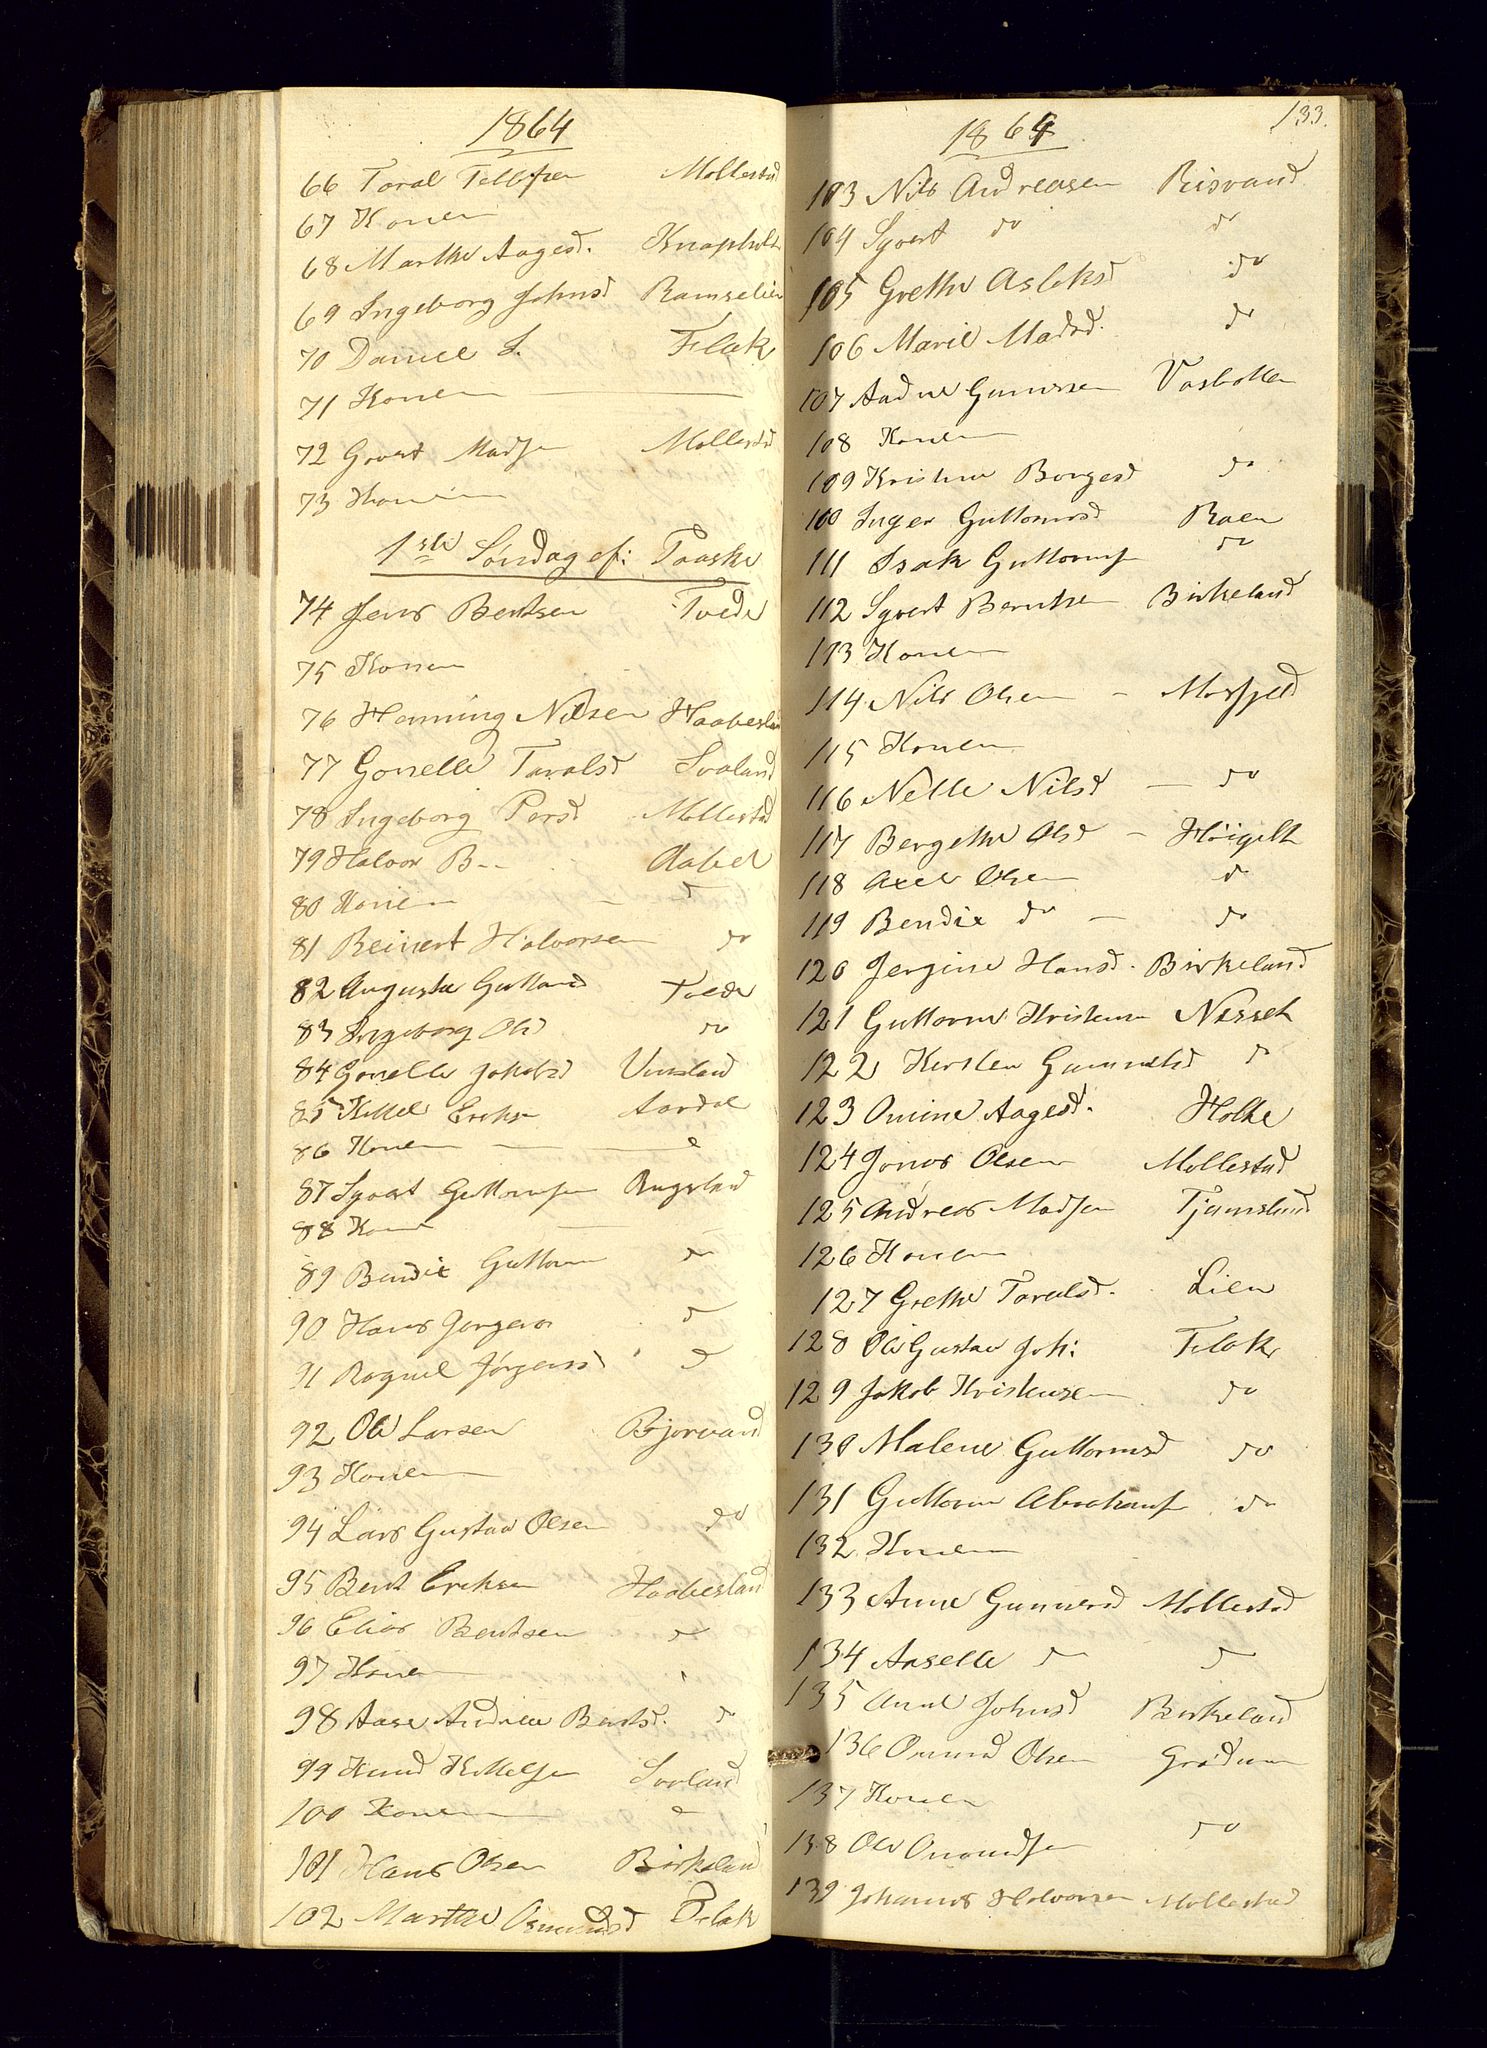 1864
66 Taral Tellefsen Mollestad
67 Konen
68 Marthe Aagesd. Knapholt
69 Ingeborg Johnsd Ramselien
70 Daniel S. Flak
71 Konen
72 Govert Madsen Mollestad
73 Konen
1ste Søndag ef: Paaske
74 Jens Bentsen Tvede
75 Konen
76 Henning Nilsen Haabesland
77 Gonelle Taralsd Svaland
78 Ingeborg Persd Mollestad
79 Halvor B-- Aabel
80 Konen d
81 Reinert Halvorsen do
82 Auguste Guttormsd Tvede
83 Ingeborg Olsd do
84 Gonelle Jakobsd Vinsland
85 Kittel Eriks Aardal
86 Konen
87 Syvert Guttormsen Rugsland
88 Konen
89 Bendix Guttorm do
90 Hans Jørgens do
91 Raguel Jørgensd d
92 Ole Larsen Bjorvand
93 Konen
94 Lars Gustav Olsen do
95 Bent Eriksen Haabesland
96 Elias Bentsen do
97 Konen
98 Aase Andrea Bentsd. d
99 Knud Kittelsen Svaland
100 Konen
101 Hans Olsen Birkeland
102 Marthe Osmundsd Flak
133.
1864
103 Nils Andreasen Risvand
104 Syvert do do
105 Grethe Aslaksd do
106 Marie Madsd. do
107 Aadne Gunersen Vasbotten
108 Konen
109 Kristine Borgesd do
110 Inger Guttormsd Raen
111 Isak Guttorms do
112 Syvert Berntsen Birkeland
113 Konen
114 Nils Olsen Mosfjeld
115 Konen
116 Nelle Nilsd do
117 Bergethe Olsd Høigilt
118 Axel Olsen do
119 Bendix do do
120 Jergine Hansd. Birkeland
121 Guttorm Kristensen Nesset
122 Kirsten Gunneld do
123 Omine Aagesd. Holte
124 Jonas Olsen Mollestad
125 Andreas Madsen Tjomsland
126 Konen
127 Grethe Taralsd. Lien
128 Ole Gustav Joh: Flak
129 Jakob Kristensen do
130 Malene Guttormsd do
131 Guttorm Abrahams do
132 Konen
133 Anne Gunnersd Mollestad
134 Aaselle do do
135 Anne Johnsd Birkeland
136 Omund Olsen Grødum
137 Konen
138 Ole Omundsen do
139 Johannes Halvorsen Mollestad